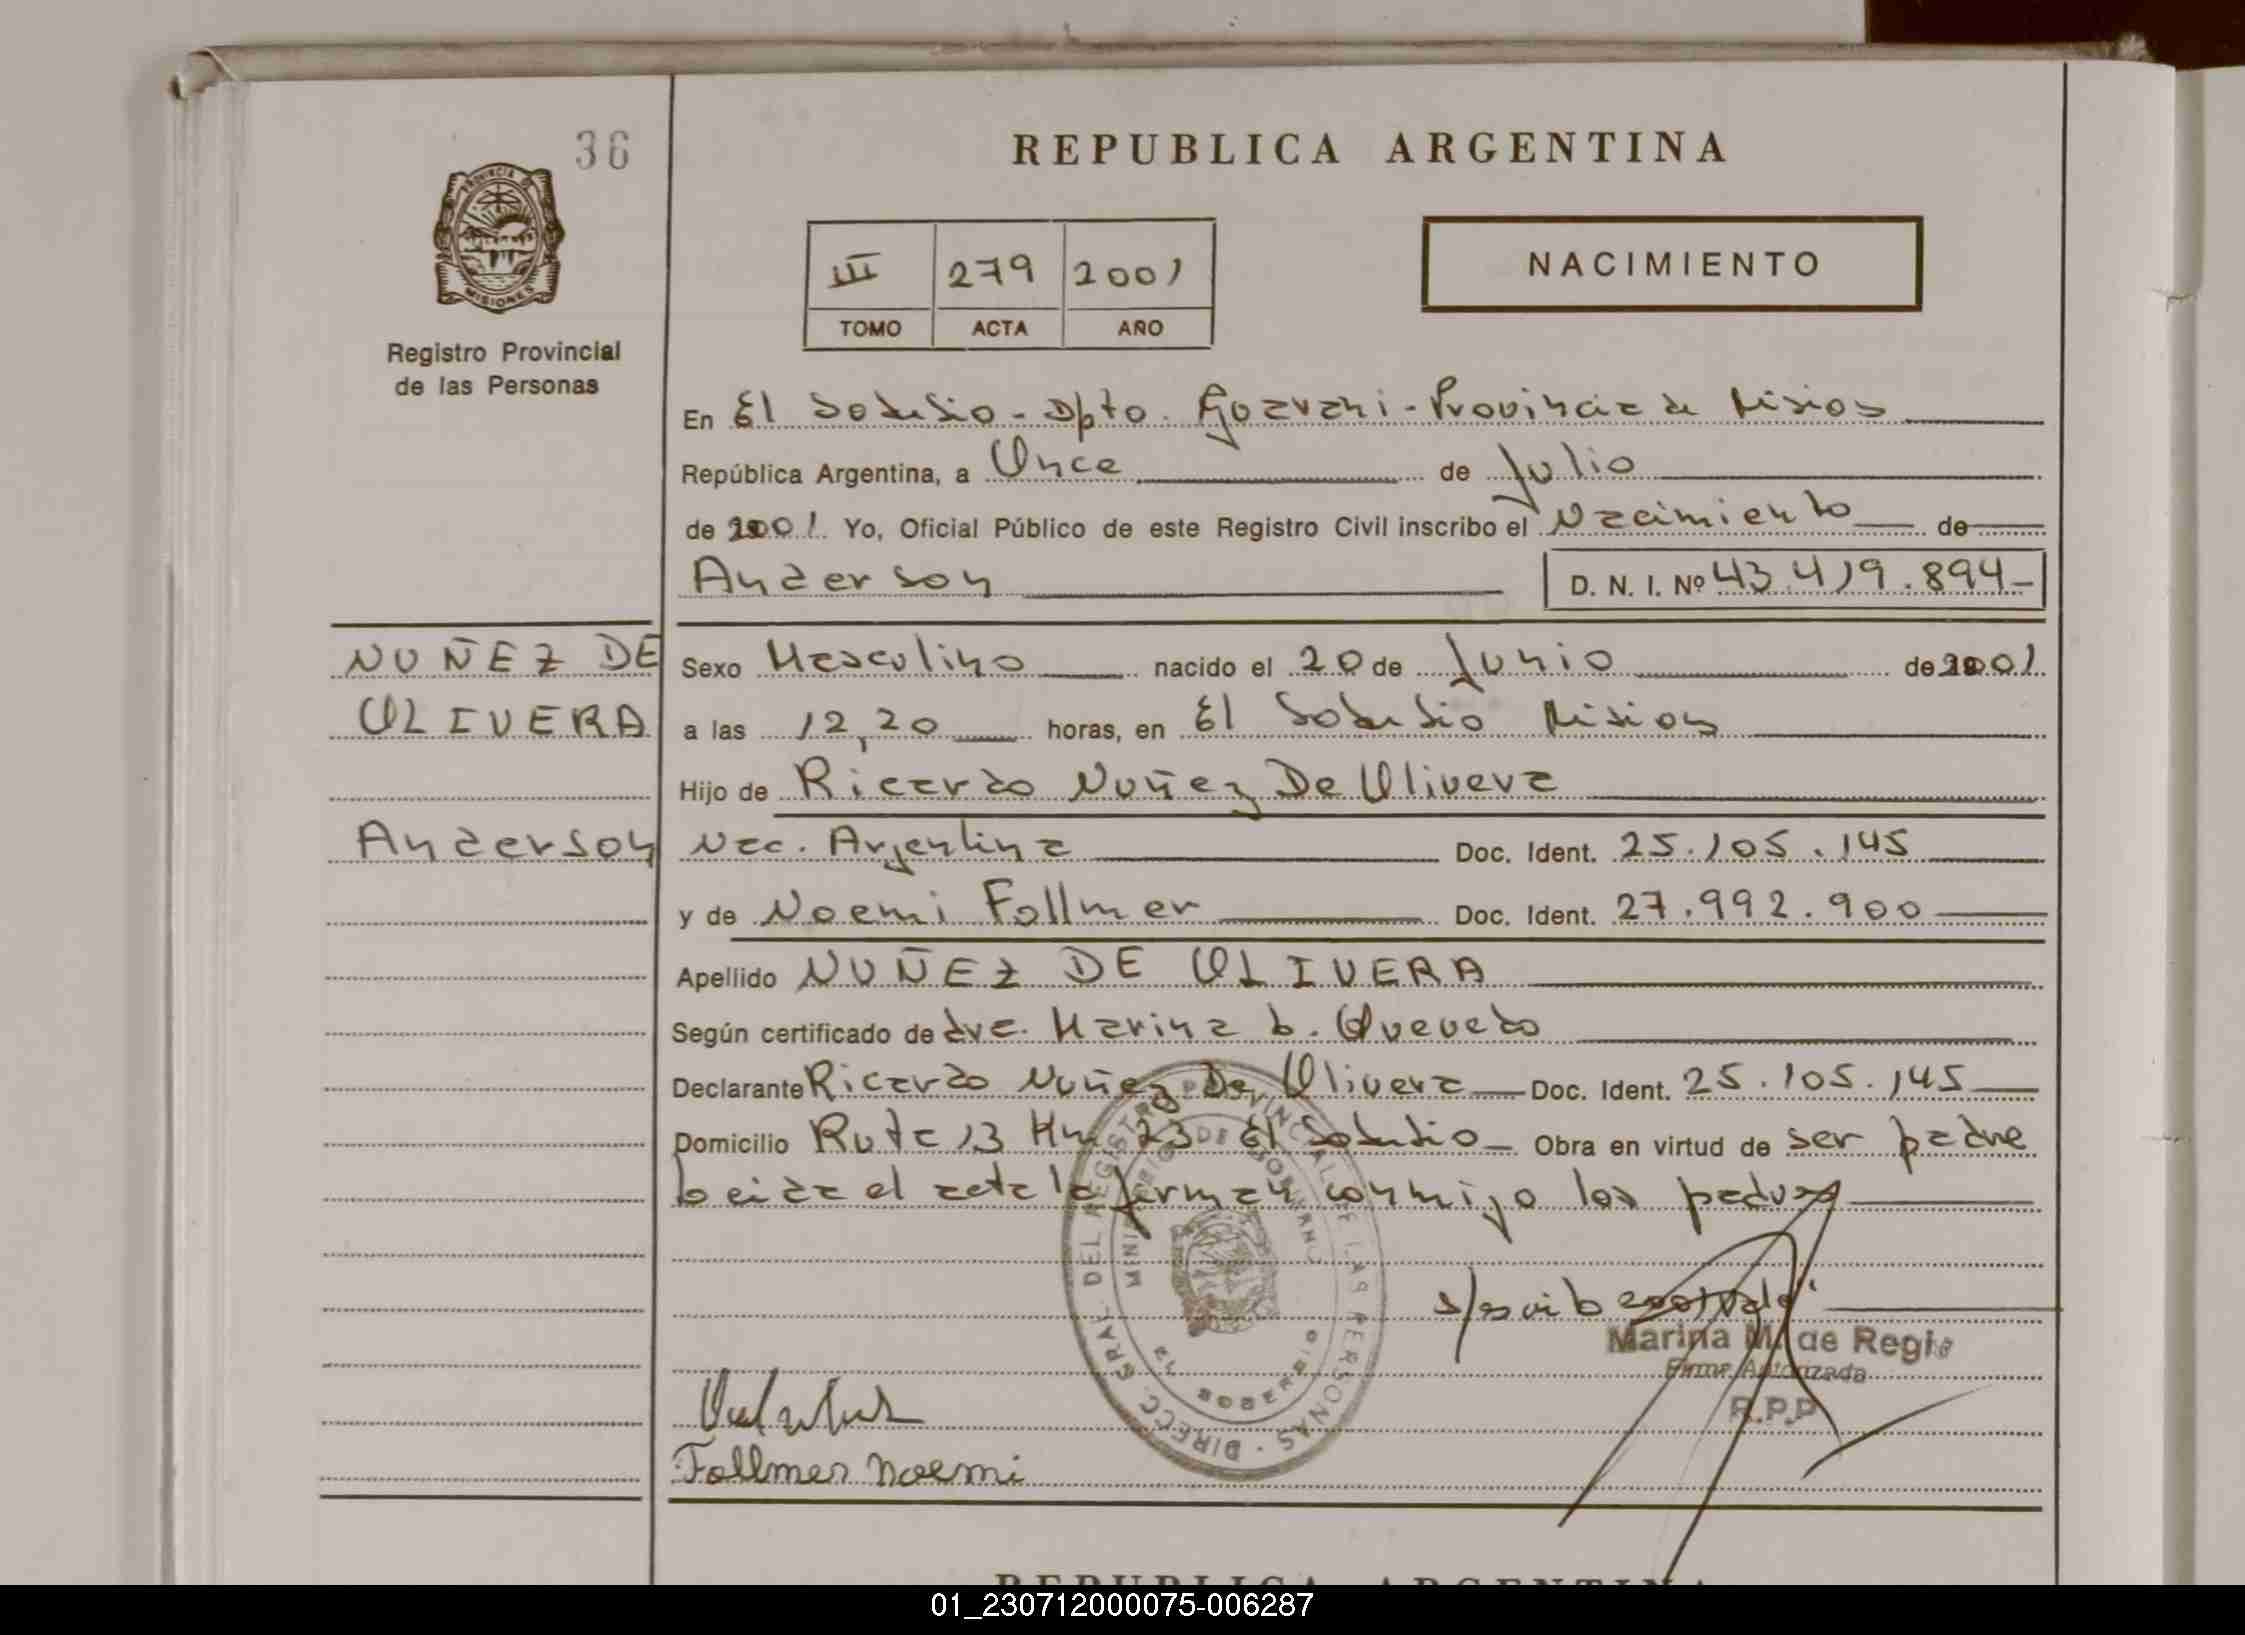 36
REPUBLICA ARGENTINA
PROVINCIA DE
MISIONES
Registro Provincial
de las Personas
III 279 2001
TOMO ACTA AÑO
NACIMIENTO
En El Soberbio - Dpto. Guarani - Provincia de Misiones
República Argentina, a Once de Julio
de 2001. Yo, Oficial Público de este Registro Civil inscribo el Nacimiento de
Anderson D. N. I. Nº 43.419.894
NUÑEZ DE
OLIVERA
Anderson
Sexo Masculino nacido el 20 de Junio de 2001
a las 12,20 horas, en El Soberbio Misiones
Hijo de Ricardo Nuñez De Olivera
Nac. Argentina Doc. Ident. 25.105.145
y de Noemi Follmer Doc. Ident. 27.992.900
Apellido NUÑEZ DE OLIVERA
Según certificado de dra. Marina b. Quevedo
Declarante Ricardo Nuñez De Olivera Doc. Ident. 25.105.145
Domicilio Ruta 13 Km 23 El Soberbio Obra en virtud de ser padre
leida el acta la firman conmigo los padres
DIRECC. GRAL. DEL REGISTRO PROVINCIAL DE LAS PERSONAS
MINISTERIO DE GOBIERNO
EL SOBERBIO
Marina M. de Regis
Firma Autorizada
R.P.P
Follmer Noemi
REPUBLICA ARGENTINA
01_230712000075-006287